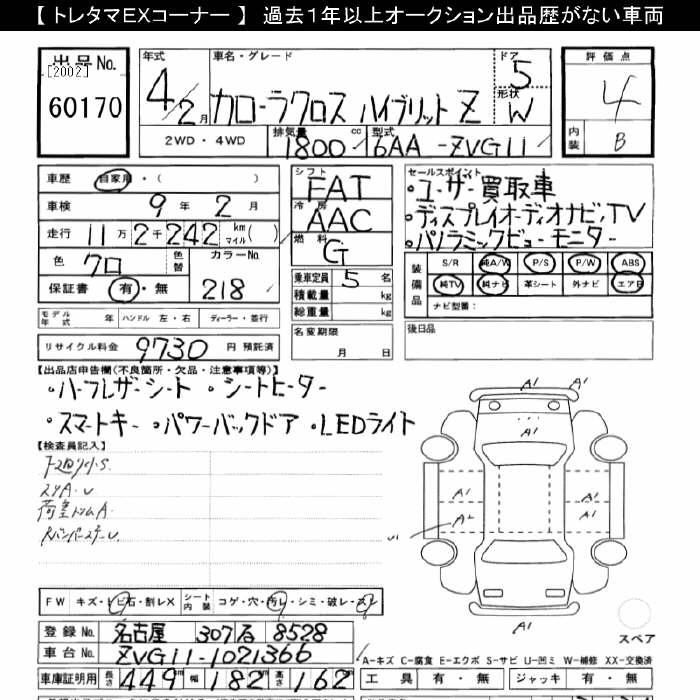 【 トレタマEXコーナー 】 過去1年以上オークション出品歴がない車両
出品 No.
[2002]
60170
年式
4/2月
車名・グレード
カローラクロス ハイブリット Z
ドア
5
形状
W
2WD・4WD
排気量
1800 cc
型式
6AA-ZVG11
評価点
4
内装
B
車歴 自家用・( )
車検 9年 2月
走行 11万2千242 km マイル( )
色 クロ 色替 カラーNo. 218
保証書 有・無
シフト FAT
冷房 AAC
燃料 G
乗車定員 5 名
積載量 kg
総重量 kg
名変期限
月 日
セールスポイント
・ユーザー買取車
・ディスプレイオーディオナビ, TV
・パノラミックビューモニター
装備品
S/R 純A/W P/S P/W ABS
純TV 純ナビ 革シート 外ナビ エアB
ナビ型番:
後日品
モデル年式 年 ハンドル 左・右 ディーラー・並行
リサイクル料金 9730 円 預託済
【出品店申告欄(不良箇所・欠品・注意事項等)】
・ハーフレザーシート ・シートヒーター
・スマートキー ・パワーバックドア ・LEDライト
【検査員記入】
A1 A1
A1
A1 A1
A2 A1
A1
FW キズ・トビ石・割レX シート内装 コゲ・穴・汚レ・シミ・破レ・スレ
登録 No. 名古屋 307 る 8528
車台 No. ZVG11-1021366
車庫証明用 長さ 449 幅 182 高さ 162
スペア
A-キズ C-腐食 E-エクボ S-サビ U-凹ミ W-補修 XX-交換済
工具 有・無 ジャッキ 有・無